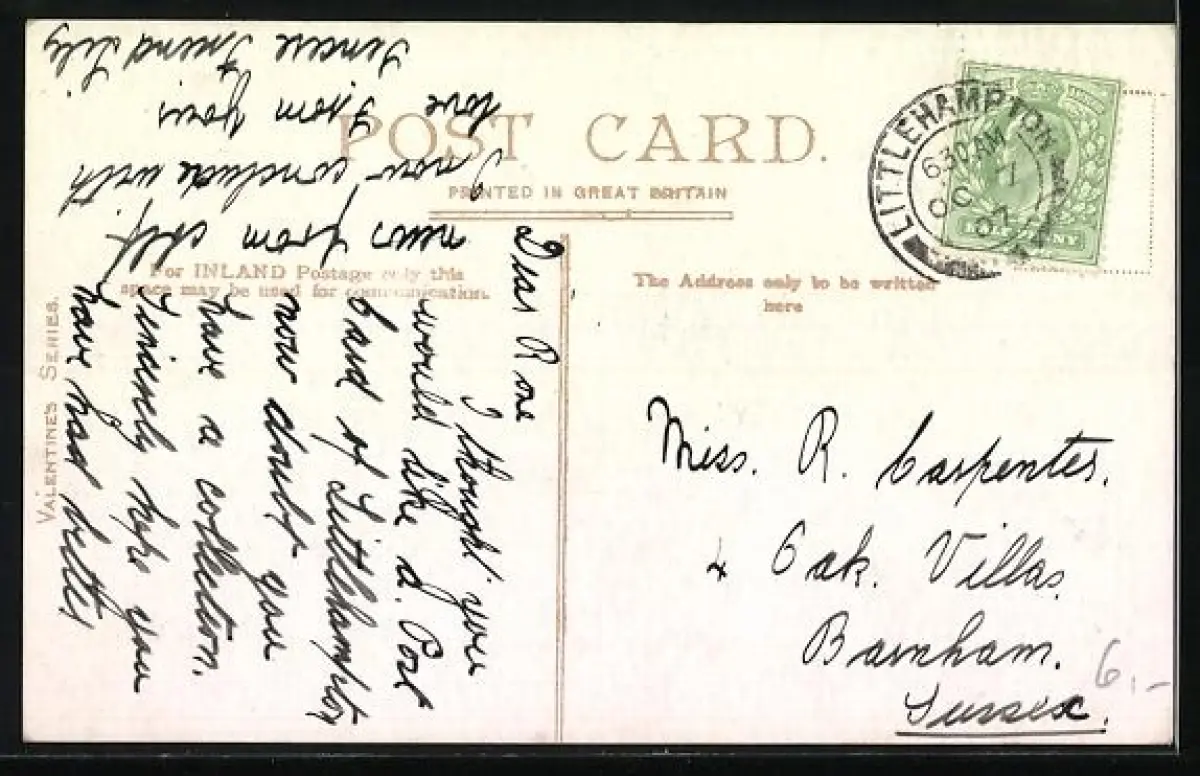 POST CARD.
PRINTED IN GREAT BRITAIN
For INLAND Postage only this
space may be used for communication.
The Address only to be written
here
VALENTINE'S SERIES.
LITTLEHAMPTON
6 30 AM
OC 1
07
HALFPENNY
Dear Rose
I thought you
would like a Post
Card of Littlehampton
now doubt you
have a collection.
Sincerely hope you
have had better
news from
I now conclude with
love From your
Sincere Friend Lily
Miss. R. Carpenter.
4 Oak. Villas.
Barnham.
Sussex.
6.-